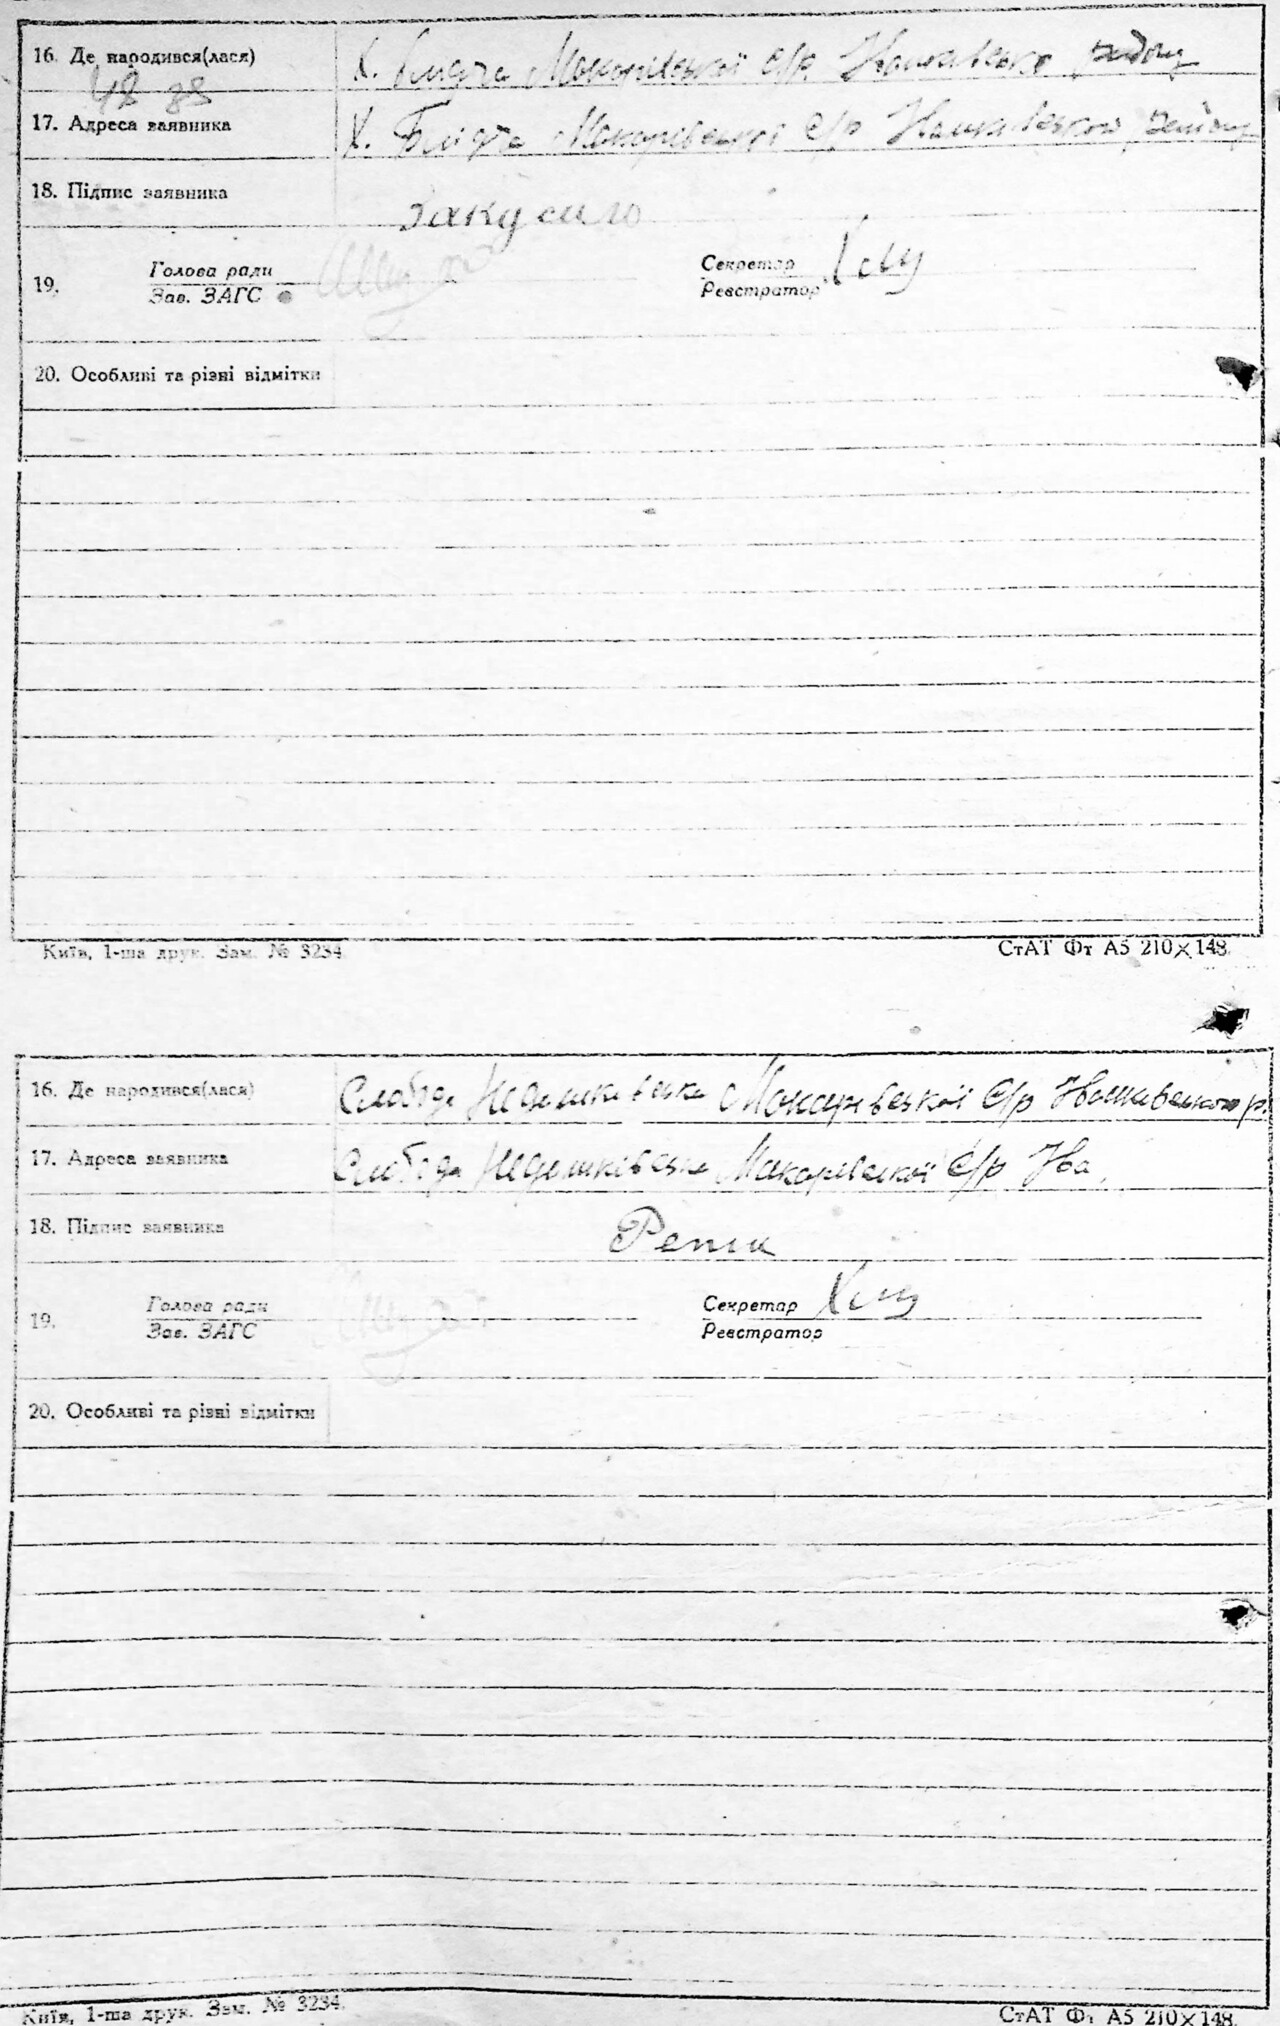 16. Де народився(лася) Х. Макарівської с/р. району
48 38
17. Адреса заявника Х. Макарівської с/р району
18. Підпис заявника Закусило
Голова ради Секретар
19.
Зав. ЗАГС Реєстратор
20. Особливі та різні відмітки
Київ, 1-ша друк. Зам. № 3234. СтАТ Фт А5 210×148.
16. Де народився(лася) Слобода Макарівської с/р р.
17. Адреса заявника Слобода Макарівської с/р На
18. Підпис заявника Репік
Голова ради Секретар
19.
Зав. ЗАГС Реєстратор
20. Особливі та різні відмітки
Київ, 1-ша друк. Зам. № 3234. СтАТ Фт А5 210×148.